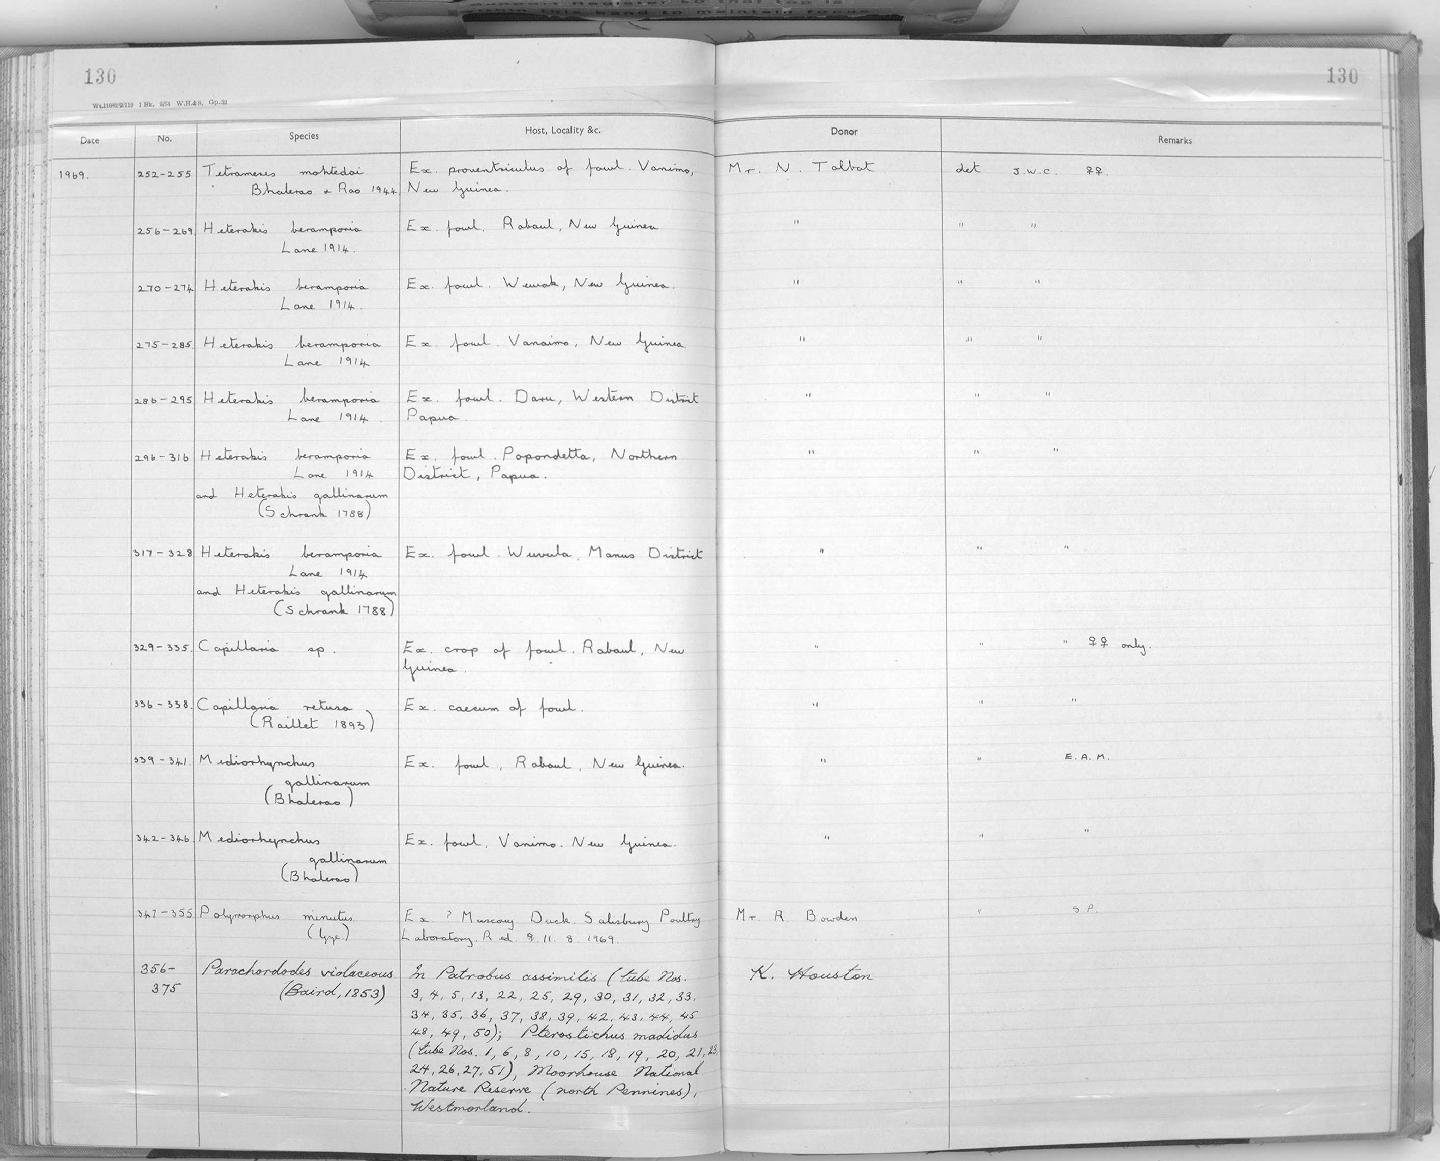 130
130
Date
No.
Species
Host, Locality &c.
Donor
Remarks
1969. 252-255 Tetrameres mohtedai Ex. proventriculus of fowl. Vanimo, Mr. N. Talbot det J.W.C. ♀♀.
Bhalerao & Rao 1944 New Guinea.
256-269 Heterakis beramporia Ex. fowl. Rabaul, New Guinea " " "
Lane 1914.
270-274 Heterakis beramporia Ex. fowl. Wewak, New Guinea. " " "
Lane 1914.
275-285 Heterakis beramporia Ex. fowl. Vanaimo, New Guinea " " "
Lane 1914
286-295 Heterakis beramporia Ex. fowl. Daru, Western District " " "
Lane 1914 Papua.
296-316 Heterakis beramporia Ex. fowl. Popondetta, Northern " " "
Lane 1914 District, Papua.
and Heterakis gallinarum
(Schrank 1788)
317-328 Heterakis beramporia Ex. fowl. Wuvula, Manus District " " "
Lane 1914
and Heterakis gallinarum
(Schrank 1788)
329-335. Capillaria sp. Ex. crop of fowl. Rabaul, New " " " ♀♀ only.
Guinea.
336-338. Capillaria retusa Ex. caecum of fowl. " " "
(Raillet 1893)
339-341. Mediorhynchus Ex. fowl, Rabaul, New Guinea. " " E.A.M.
gallinarum
(Bhalerao)
342-346 Mediorhynchus Ex. fowl, Vanimo. New Guinea. " " "
gallinarum
(Bhalerao)
347-355 Polymorphus minutus Ex ? Muscovy Duck. Salisbury Poultry Mr R Bowden " S P.
Laboratory. R ed. 9. 11. 8. 1969.
356- Parachordodes violaceous In Patrobus assimilis (tube Nos. K. Houston
375 (Baird, 1853) 3, 4, 5, 13, 22, 25, 29, 30, 31, 32, 33,
34, 35, 36, 37, 38, 39, 42, 43, 44, 45
48, 49, 50); Pterostichus madidus
(tube Nos. 1, 6, 8, 10, 15, 18, 19, 20, 21, 23,
24, 26, 27, 51), Moorhouse National
Nature Reserve (north Pennines),
Westmorland.